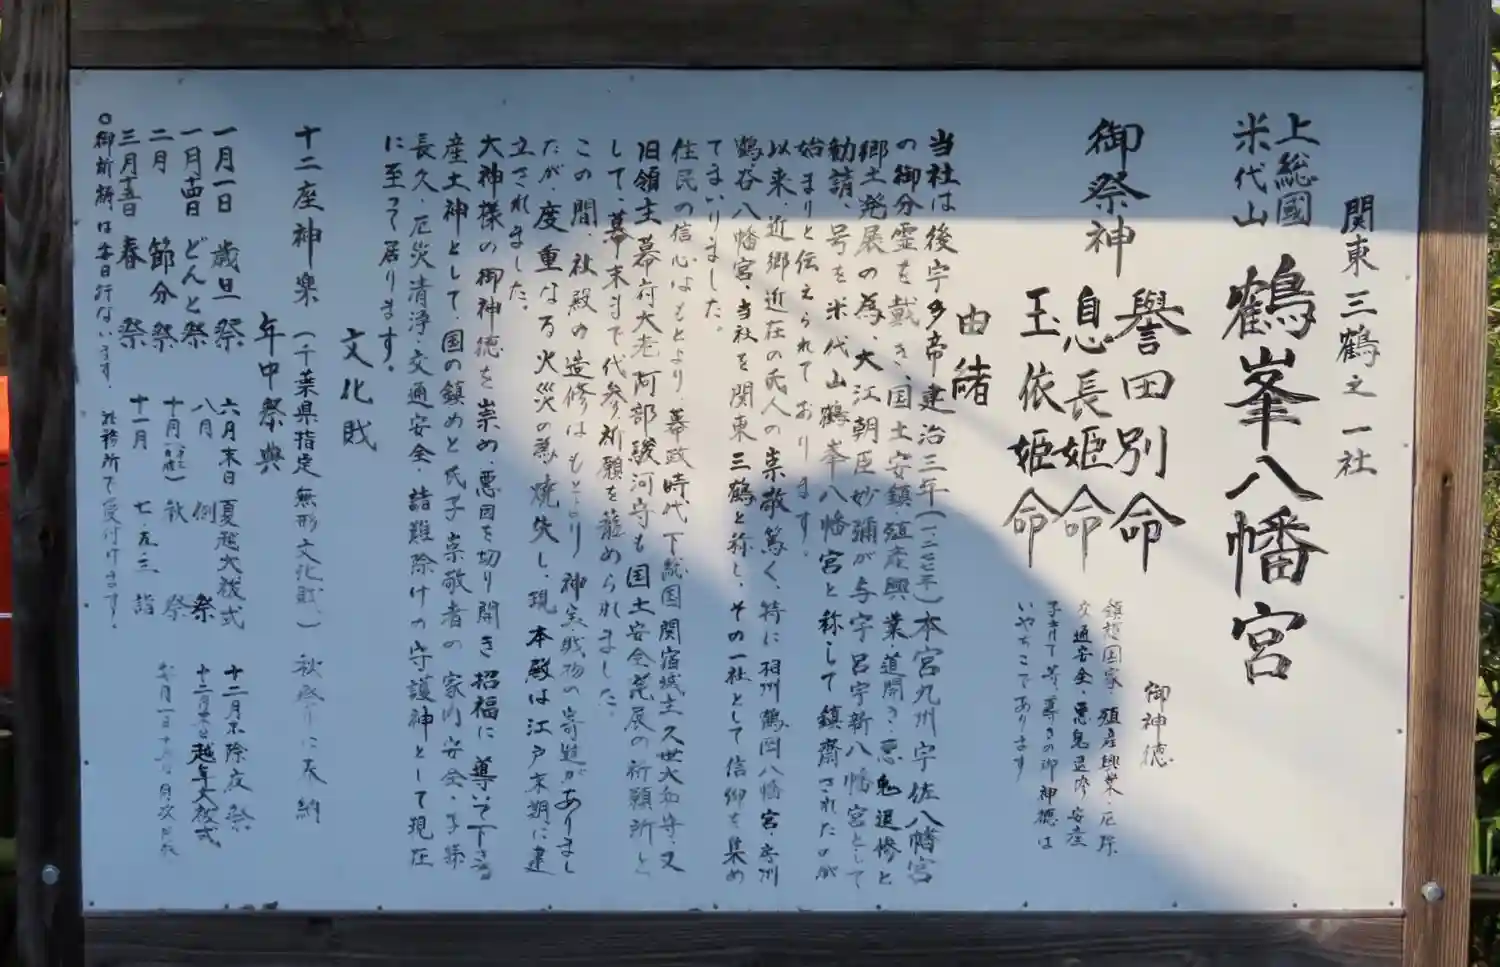 関東三鶴之一社
上総國
米代山
鶴峯八幡宮
御祭神
譽田別命
息長姫命
玉依姫命
御神徳
鎮護国家 殖産興業・厄除
交通安全・悪鬼退修 安産
子育て等、尊きの御神徳は
いやちこであります
由緒
当社は後宇多帝建治三年(一二七七年)本宮九州宇佐八幡宮
の御分霊を戴き、国土安鎮 殖産興業・道開き・悪鬼退修と
郷土発展の為、大江朝臣妙彌が与宇呂宇新八幡宮として
勧請、号を米代山鶴峯八幡宮と称して鎮齋されたのが
始まりと伝えられております。
以来、近郷近在の氏人の崇敬篤く、特に羽州鶴岡八幡宮・房州
鶴ヶ谷八幡宮、当社を関東三鶴と称し、その一社として信仰を集め
てまいりました。
住民の信心はもとより、幕政時代下総国関宿城主久世大和守、又
旧領主幕府大老阿部駿河守も国土安全発展の祈願所と
して、幕末まで代参り祈願を籠められました。
この間、社殿の造修はもとより神宝戝物の寄進がありまし
たが、度重なる火災の為焼失し、現本殿は江戸末期に建
立されました。
大神様の御神徳を崇め、悪因を切り開き招福に導いて下さる
産土神として、国の鎮めと氏子崇敬者の家内安全・子孫
長久・厄災清浄・交通安全・諸難除けの守護神として現在
に至って居ります。
文化戝
十二座神楽(千葉県指定無形文化戝)秋祭りに奉納
年中祭典
一月一日 歳旦祭
一月十四日 どんと祭
二月 節分祭
三月十五日 春祭
六月末日 夏越大祓式
八月 例祭
十月 秋祭
十一月 七・五・三詣
十二月末 除夜祭
越年大祓式
毎月一日十五日月次祭
○御祈祷は毎日行ないます。社務所で受付けます。